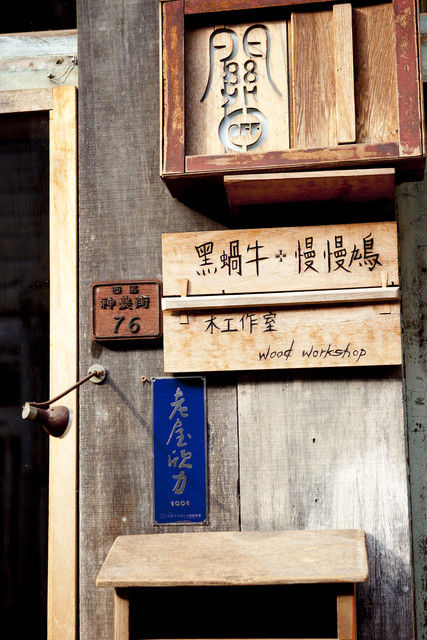 關
OFF
黑蝸牛+慢慢鳩
木工作室
wood workshop
西區
神農街
76
老屋欣力
2008